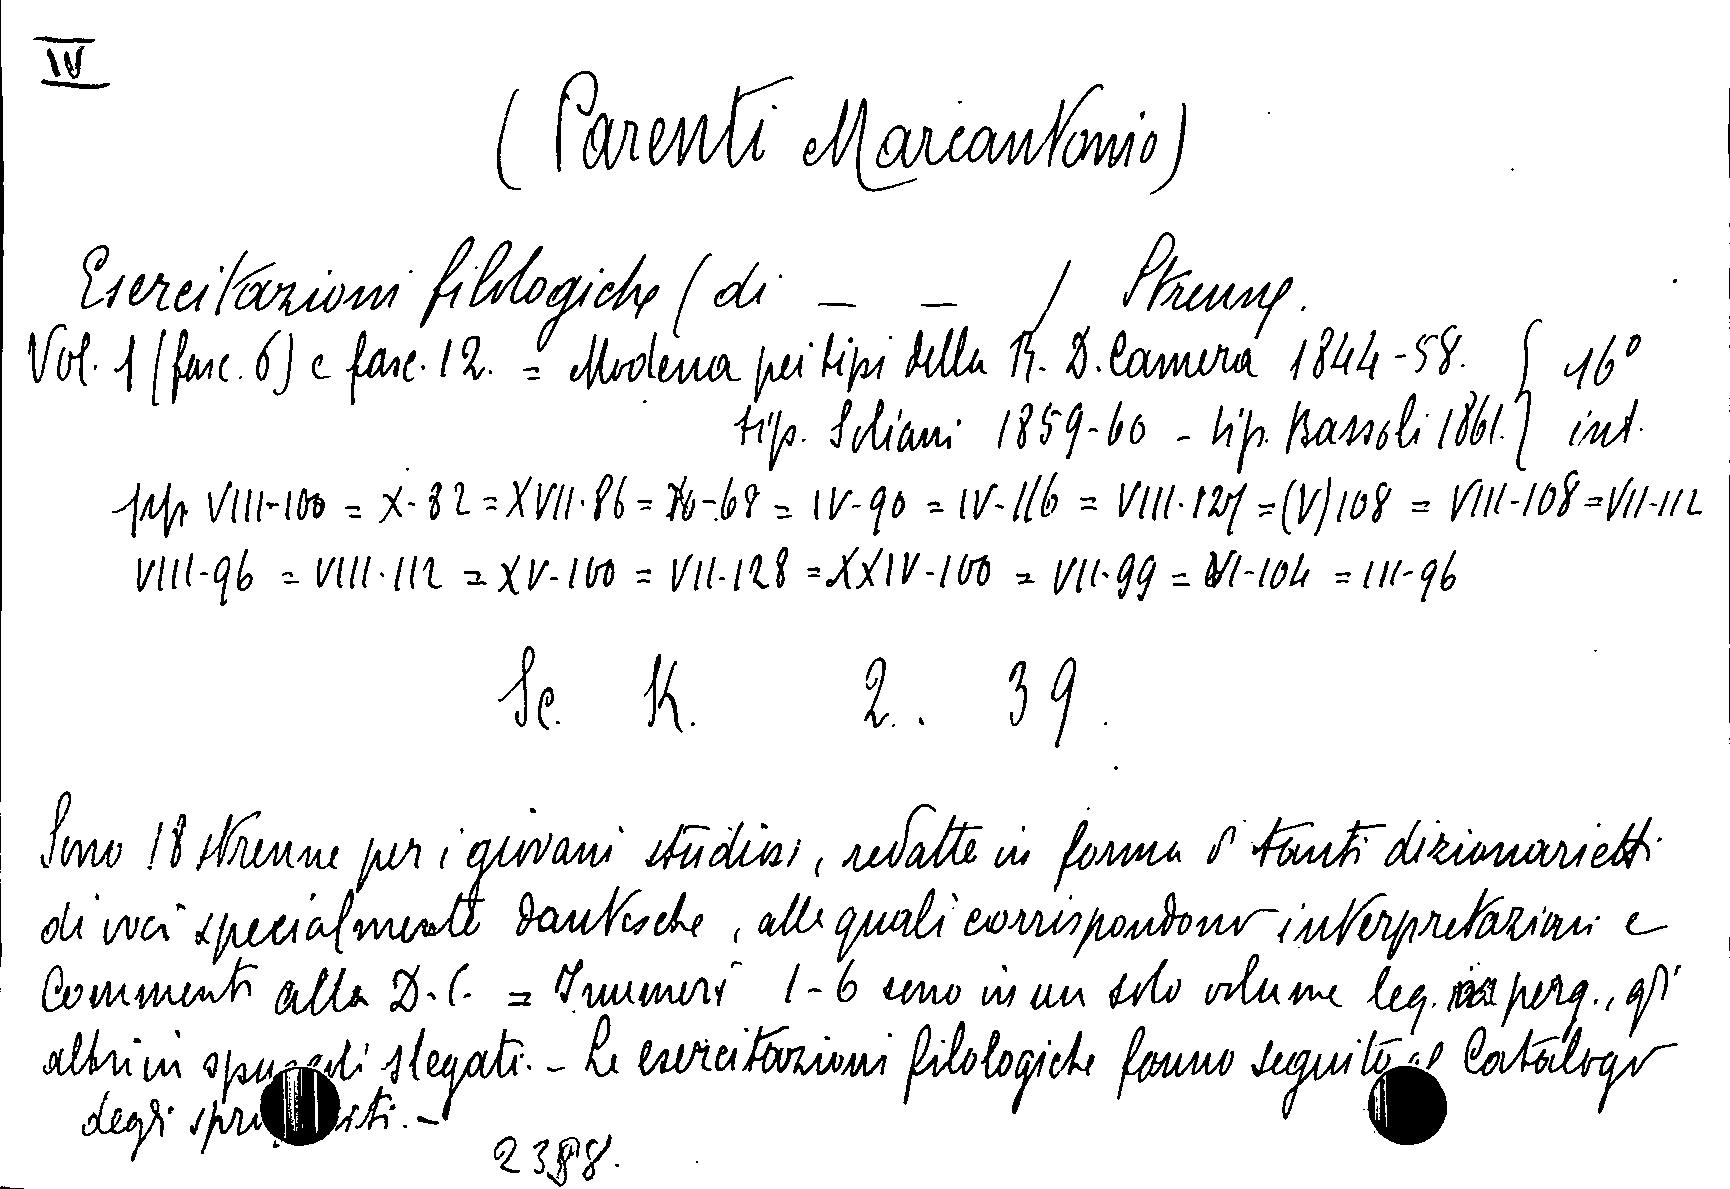 IV
(Parenti Marcantonio)
Esercitazioni filologiche (di _ _ / Strenne.
Vol. 1 (fasc. 6) e fasc. 12. = Modena pei tipi della R. D. Camera 1844-58. } 16°
tip. Soliani 1859-60 - tip. Bassoli 1861. } int.
pp. VIII-100 = X-82 = XVII-86 = -68 = IV-90 = IV-116 = VIII-127 = (V)108 = VIII-108 = VII-112
VIII-96 = VIII-112 = XV-100 = VII-128 = XXIV-100 = VII-99 = VI-104 = III-96
Sc. K. 2. 39.
Sono 18 strenne per i giovani studiosi, redatte in forma di tanti dizionarietti
di voci specialmente dantesche, alle quali corrispondono interpretazioni e
Commenti alla D.C. = I numeri 1-6 sono in un solo volume leg. perg., gli
altri in slegati. - Le esercitazioni filologiche fanno seguito al Catalogo
degli
2388.